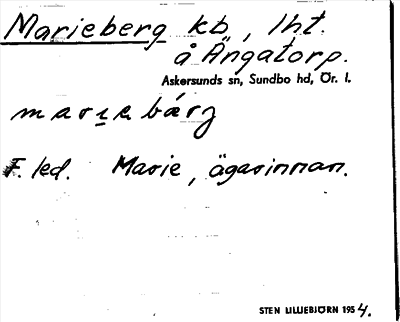 Marieberg kb, lht.
å Ängatorp.
Askersunds sn, Sundbo hd, Ör. l.
marɪebárj
F. led. Marie, ägarinnan.
STEN LILLIEBJÖRN 1954.